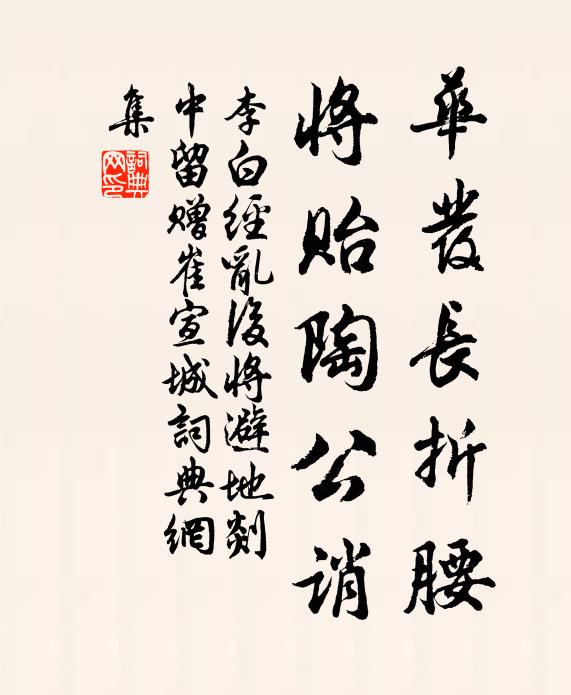 華發長折腰
將貽陶公誚
李白經亂後將避地剡
中留贈崔宣城詞典網
集
詞典网印